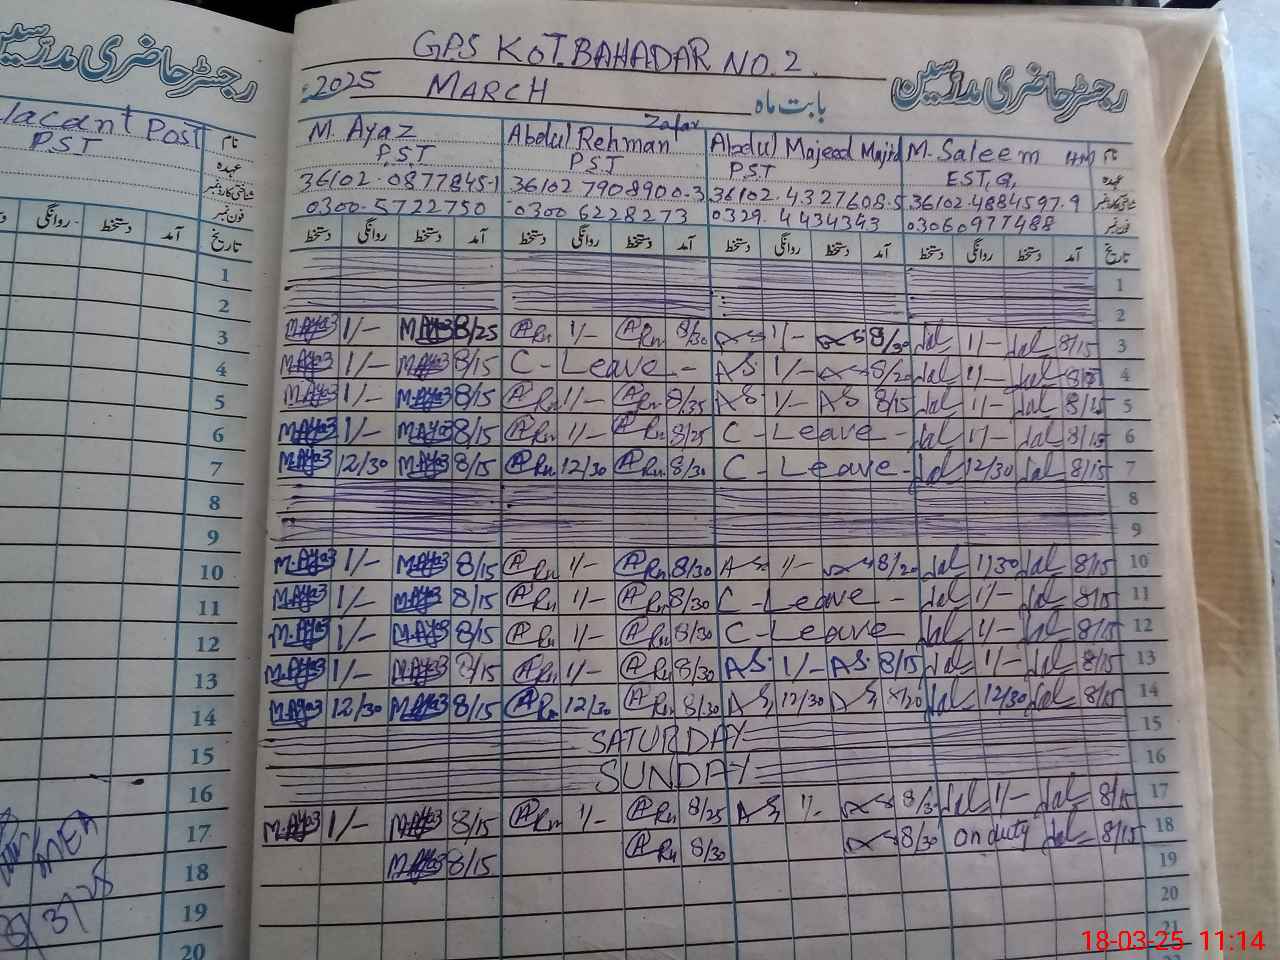 رجسٹر حاضری مدرسین
GPS KOT.BAHADAR NO.2.
2025 MARCH بابت ماہ
رجسٹر حاضری مدرسین
Vacant Post نام
P.S.T عہدہ
شناختی کارڈ نمبر
فون نمبر
روانگی دستخط آمد تاریخ
M. Ayaz Abdul Rehman Zafar Abdul Majeed Majid M. Saleem HM نام
P.S.T P.S.T P.S.T EST,G, عہدہ
36102-0877845-1 36102 7908900-3 36102-4327608-5 36102-4884597-9 شناختی کارڈ نمبر
0300-5722750 0300 6228273 0329-4434343 03060977488 فون نمبر
دستخط روانگی دستخط آمد دستخط روانگی دستخط آمد دستخط روانگی دستخط آمد دستخط روانگی دستخط آمد تاریخ
1 1
2 2
3 M.Ayaz 1/- M.Ayaz 8/25 ARu 1/- ARu 8/30 1/- 8/30 1/- 8/15 3
4 M.Ayaz 1/- M.Ayaz 8/15 C - Leave - AS 1/- 8/20 1/- 4
5 M.Ayaz 1/- M.Ayaz 8/15 ARu 1/- ARu 8/35 AS 1/- AS 8/15 1/- 5
6 M.Ayaz 1/- M.Ayaz 8/15 ARu 1/- ARu 8/25 C - Leave - 1/- 8/15 6
7 M.Ayaz 12/30 M.Ayaz 8/15 ARu 12/30 ARu 8/30 C - Leave - 12/30 8/15 7
8 8
9 9
10 M.Ayaz 1/- M.Ayaz 8/15 ARu 1/- ARu 8/30 AS 1/- 8/20 1/30 8/15 10
11 M.Ayaz 1/- M.Ayaz 8/15 ARu 1/- ARu 8/30 C - Leave - 1/- 8/15 11
12 M.Ayaz 1/- M.Ayaz 8/15 ARu 1/- ARu 8/30 C - Leave 1/- 8/15 12
13 M.Ayaz 1/- M.Ayaz 8/15 ARu 1/- ARu 8/30 AS. 1/- AS. 8/15 1/- 8/15 13
14 M.Ayaz 12/30 M.Ayaz 8/15 ARu 12/30 ARu 8/30 AS 12/30 AS 8/20 12/30 8/15 14
15 SATURDAY 15
16 SUNDAY 16
17 M.Ayaz 1/- M.Ayaz 8/15 ARu 1/- ARu 8/25 AS 1/- 1/- 8/15 17
18 M.Ayaz 8/15 ARu 8/30 8/30 on duty 8/15 18
19 19
20 20
21
MEA
18-03-25 11:14